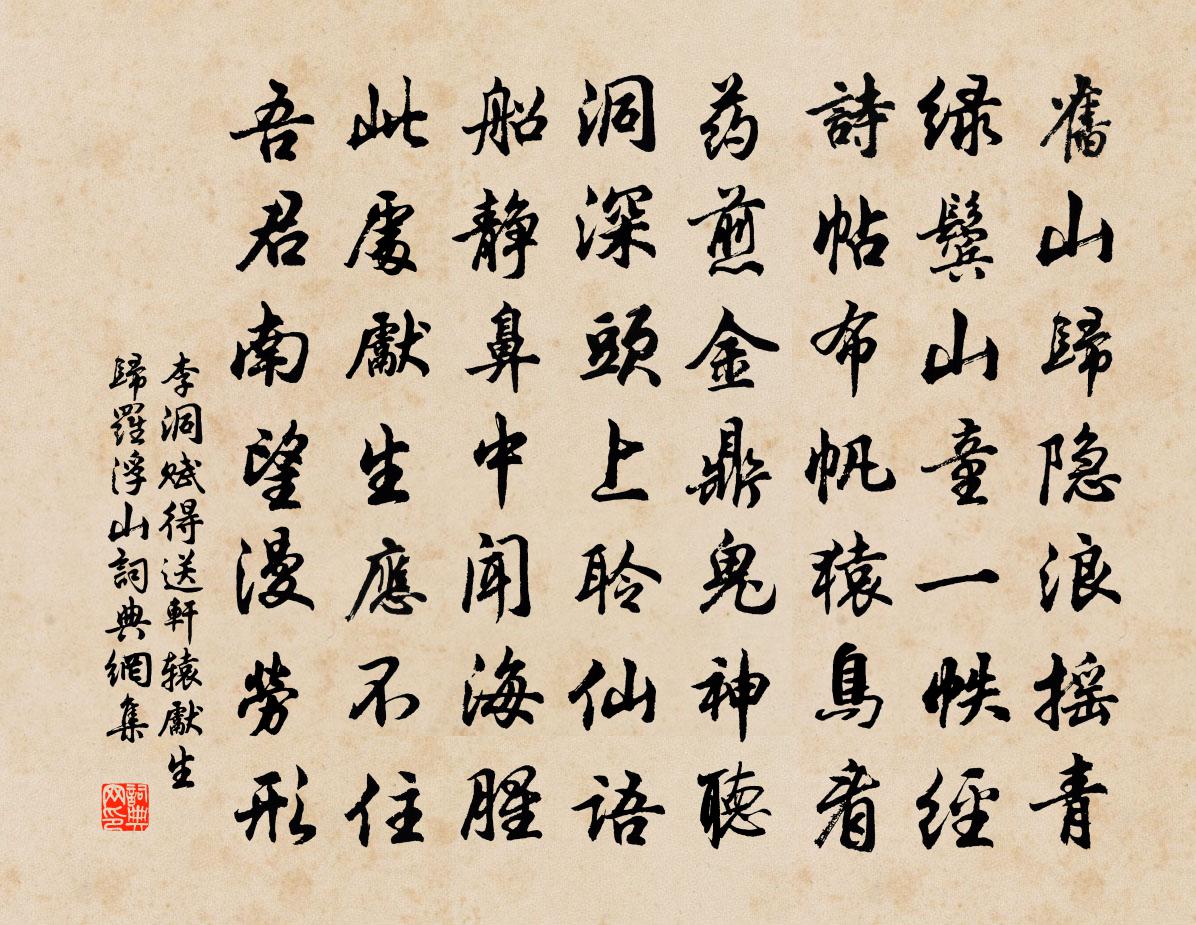 舊山歸隐浪摇青
緑鬢山童一帙經
詩帖布帆猿鳥看
药煎金鼎鬼神聽
洞深頭上聆仙語
船静鼻中聞海腥
此處獻生應不住
吾君南望漫勞形
李洞赋得送軒辕獻生
歸羅浮山詞典網集
詞典网印